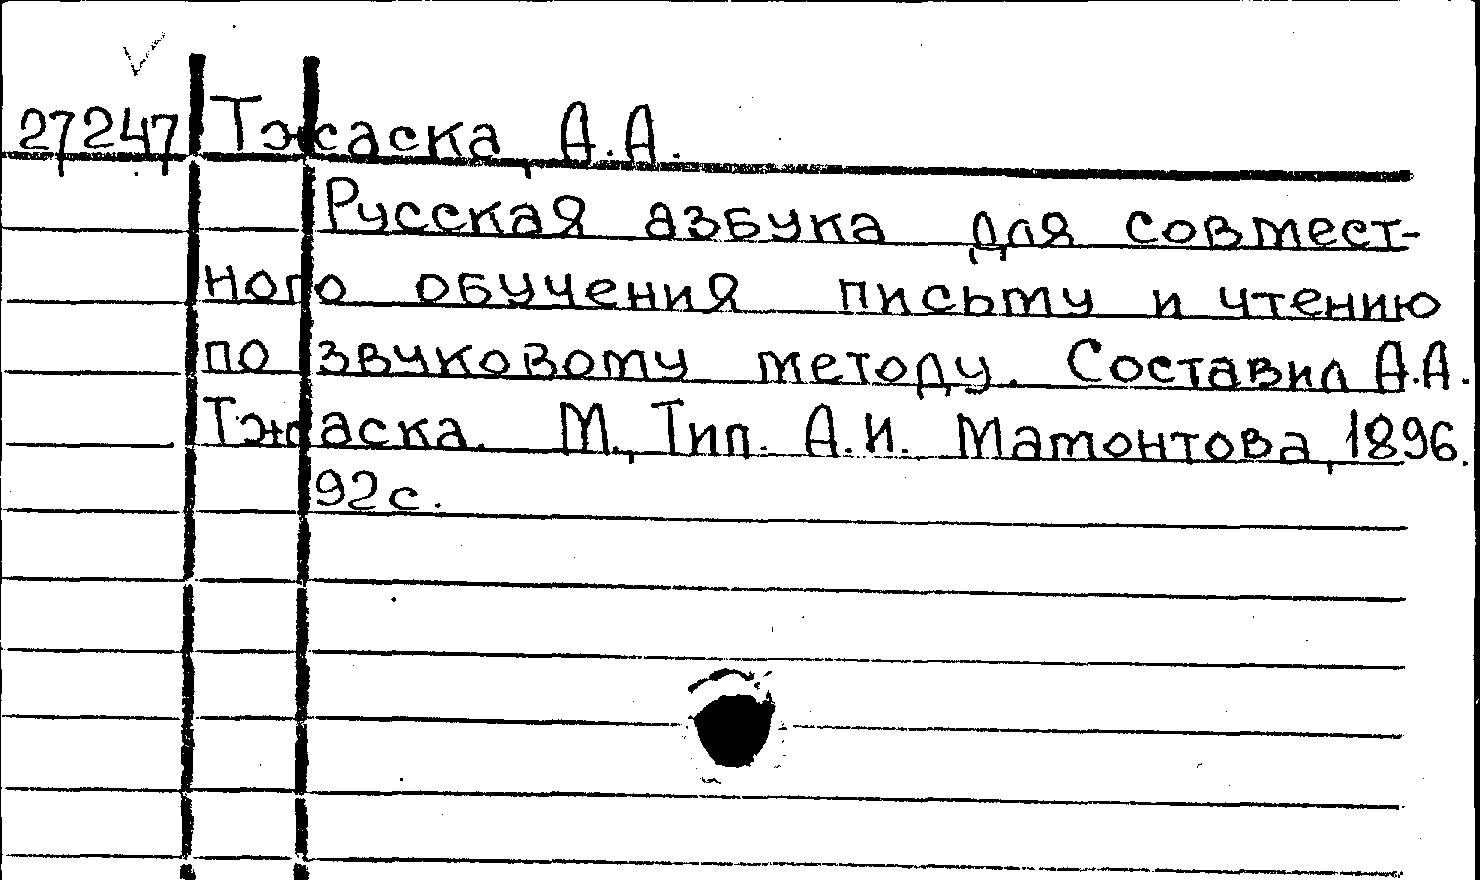 27247 Тжаска, А.А.
Русская азбука для совмест-
ного обучения письму и чтению
по звуковому методу. Составил А.А.
Тжаска. М., Тип. А.И. Мамонтова, 1896.
92с.